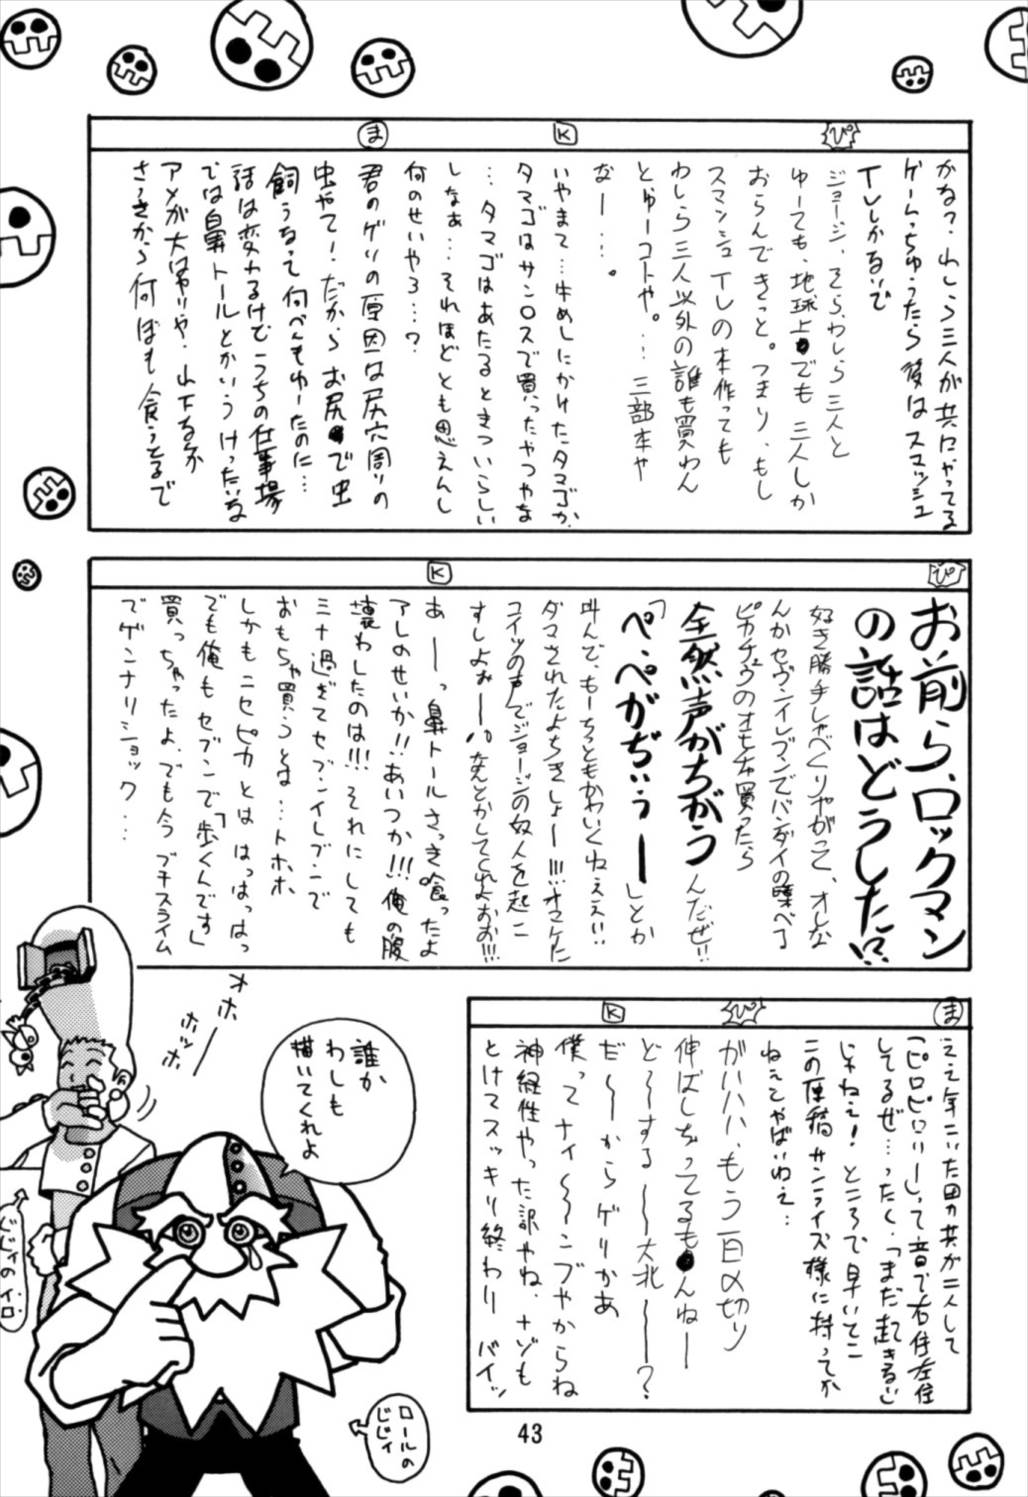 ぴ
かな?わしら三人が共にやってる
ゲームっちゅうたら後はスマッシュ
TVしかないで
ジョージ、そら、わしら三人と
ゆーても、地球上でも三人しか
おらんできっと。つまり、もし
スマッシュTVの本作っても
わしら三人以外の誰も買わん
とゆーコトや。…三部本や
なー…。
K
いやまて…牛めしにかけたタマゴか、
タマゴはサンロスで買ったやつやな
…タマゴはあたるときついらしい
しなぁ…それほどとも思えんし
何のせいやろ…?
ま
君のゲリの原因は尻穴周りの
虫やて!だからお尻で虫
飼うなって何べんもゆーたのに…
話は変わるけどうちの仕事場
では鼻トールとかいうけったいな
アメが大はやりや、山下るが
さっきから何ぼも食うとるで
ぴ
お前ら、ロックマン
の話はどうした!?
好き勝手しゃべくりやがって、オレな
んかセヴンイレブンでバンダイの喋べる
ピカチュウのオモチャ買ったら
全然声がちがうんだぜ!!
「ペ・ペがぢぃぅー」とか
叫んで、もーちっともかわいくねぇぇ!!
ダマされたよちきしょー!!!オマケに
コイツの声でジョージの奴人を起こ
すしよぉー!!なんとかしてくれよおお!!!
K
あーーっ鼻トールさっき喰ったよ
アレのせいか!!あいつか!!!俺の腹
壊わしたのは!!!それにしても
ミナ過ぎてセブンイレブンで
おもちゃ買うとは…トホホ
しかもニセピカとははっはっはっ
でも俺もセブンで「歩くんです」
買っちゃったよ、でも今プチスライム
でゲンナリショック…
ま
ええ年こいた田の共が二人して
「ピロピロリー」って音で右往左往
してるぜ…ったく、「まだ起きるな」
じゃねえ!ところで早いてこ
この原稿サンライズ様に持ってか
ねぇとやばいわえ…
ぴ
ガハハハ、もう一日〆切り
伸ばしちってるもんねー
ど〜〜する〜〜大北ーー?
K
だ〜〜からゲリかあ
僕ってナイ〜〜ンブやからね
神経性やった訳やね、ナゾも
とけてスッキリ終わりー バイッ
オホーー
ホッホッ
誰か
わしも
描いてくれよ
ロールの
じじィ
43